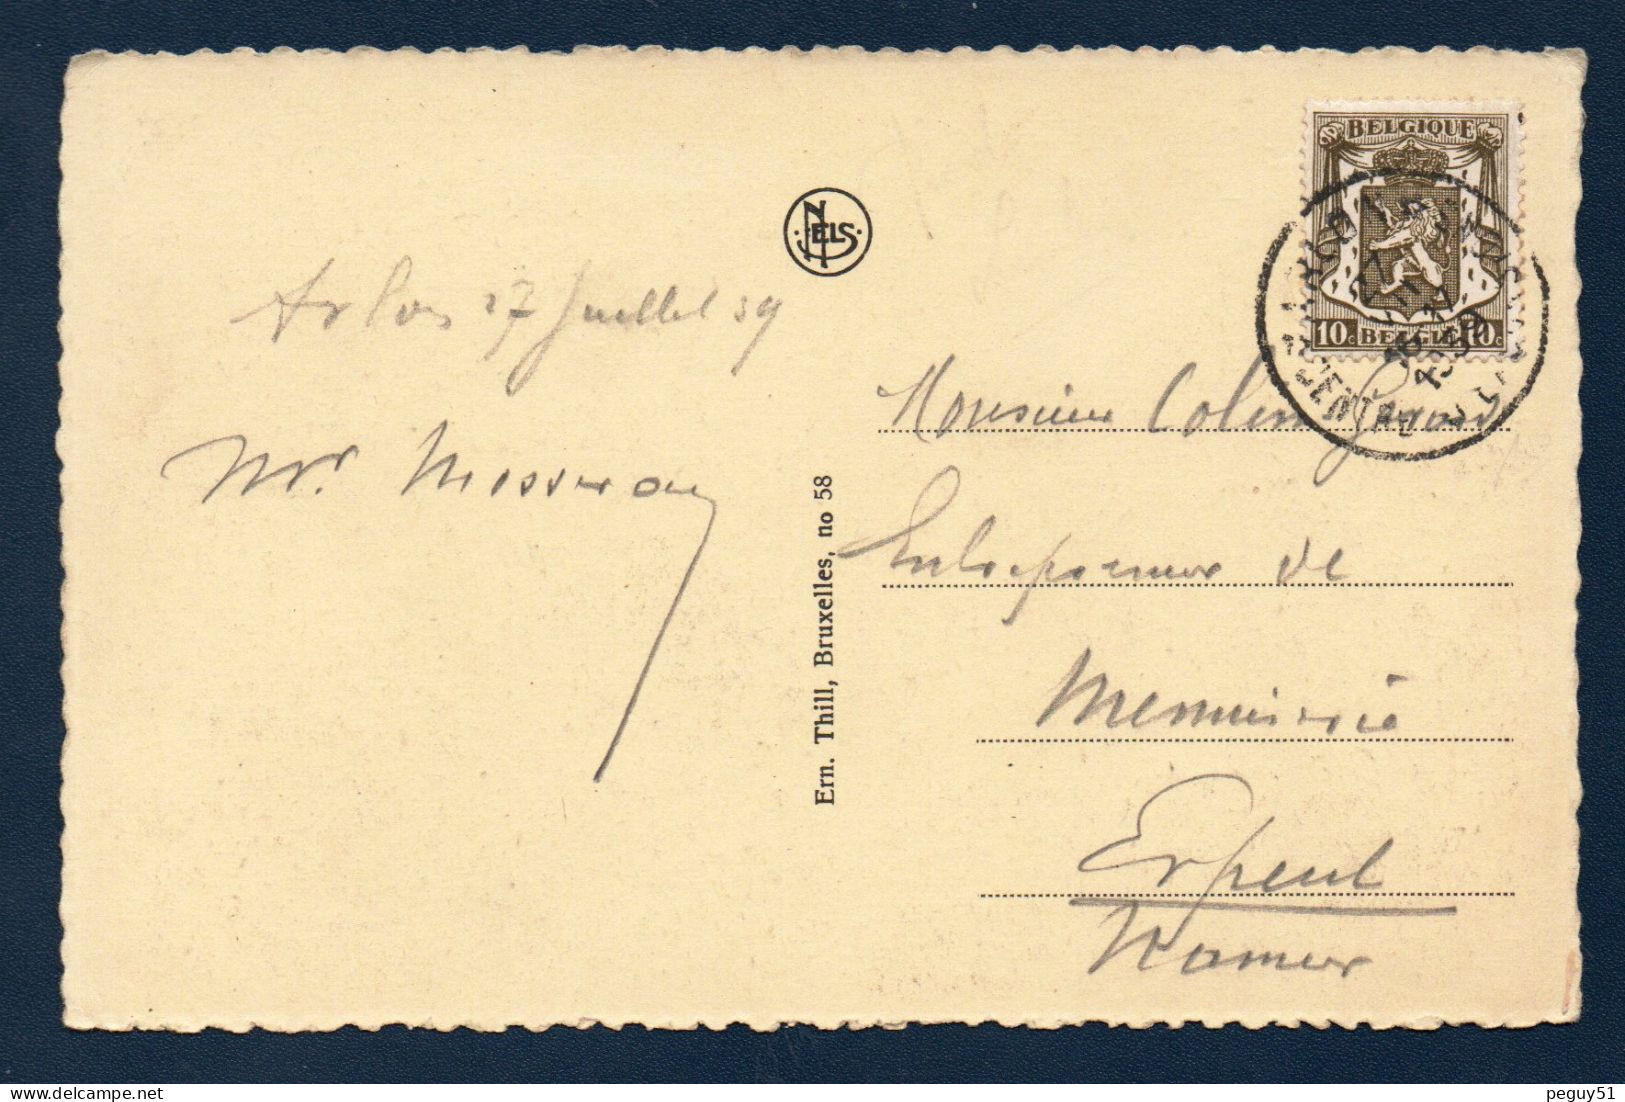 BELGIQUE
10c BELGIË 10c
NELS
Arlon 27 Juillet 39
Mr.
Monsieur Colin
Entrepreneur de
Menuiserie
Erpent
Namur
Ern. Thill, Bruxelles, no 58
CENTRAL
1939
peguy51